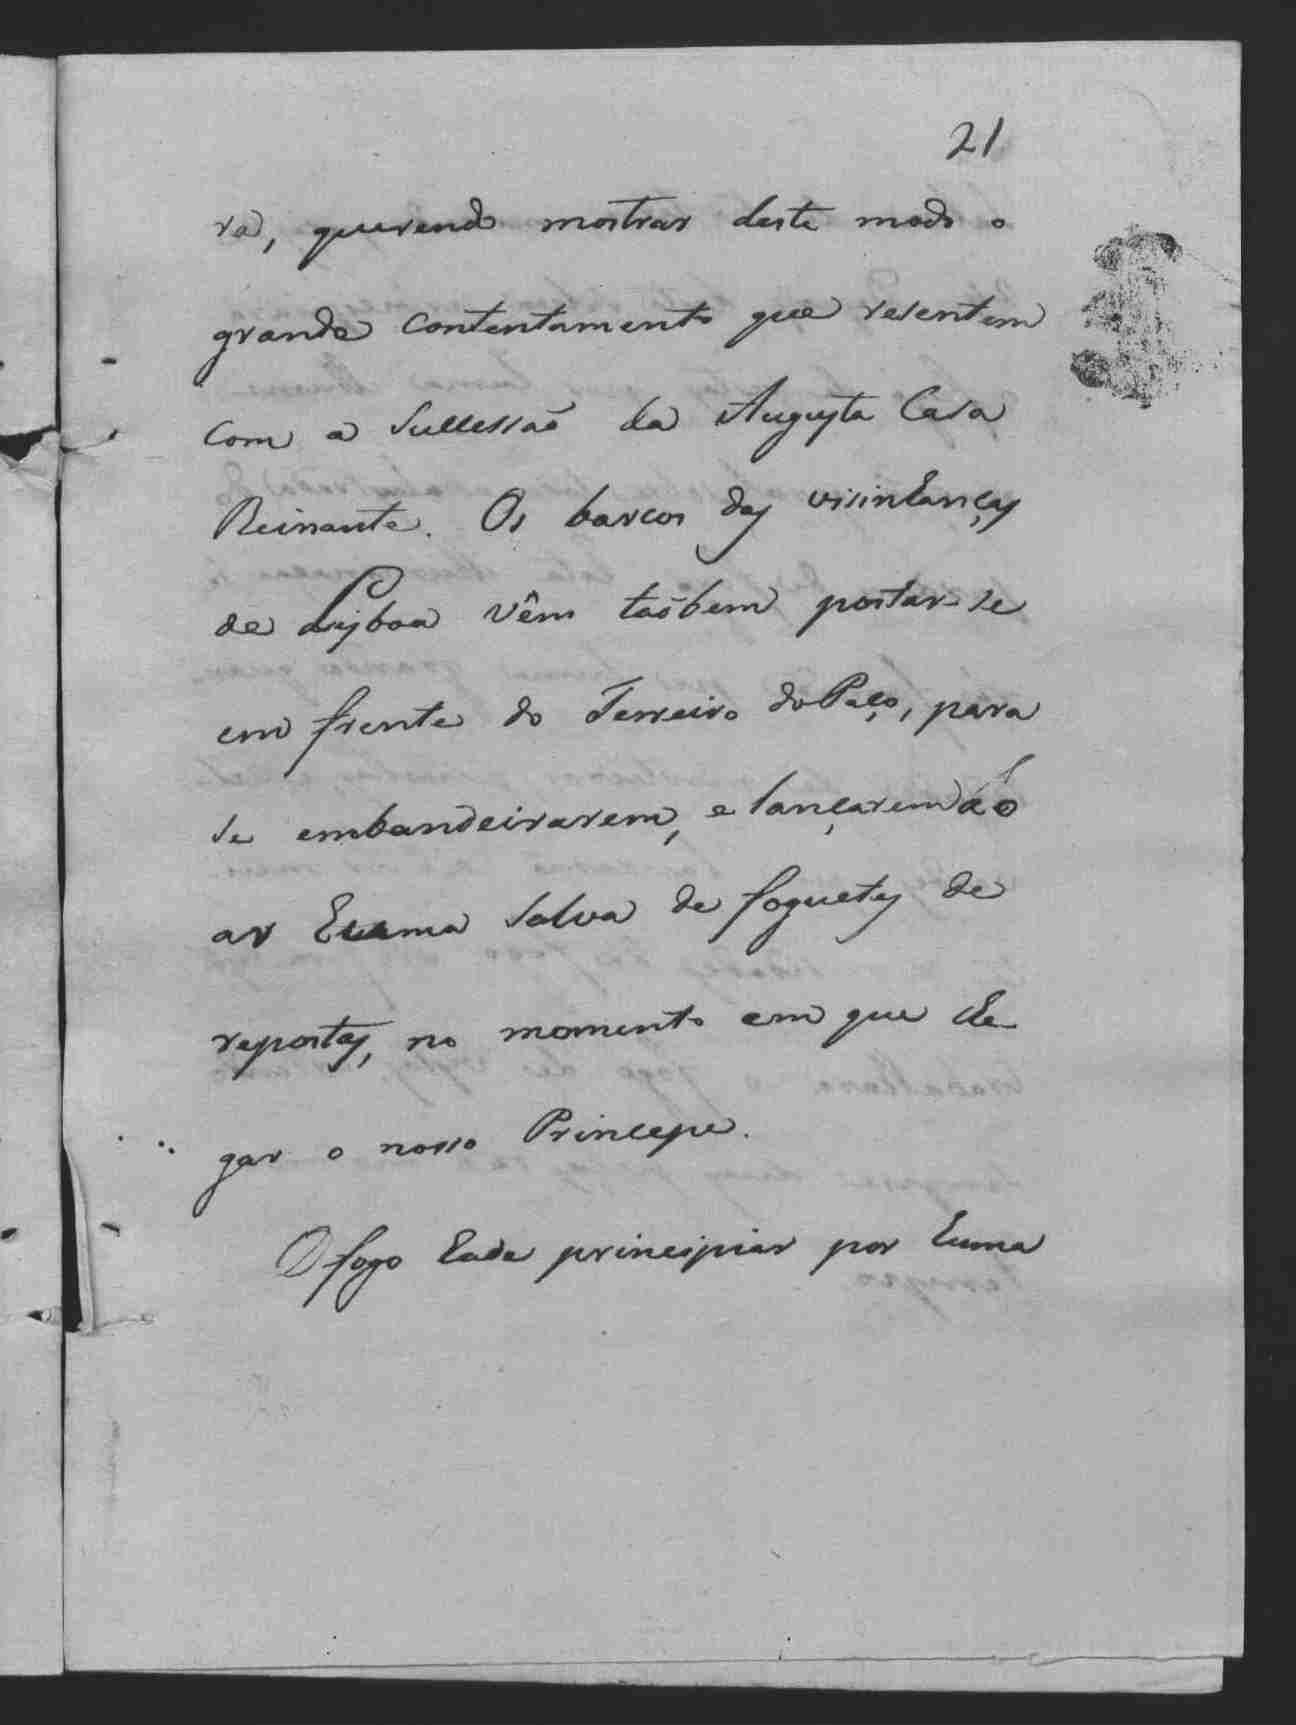 21
ra, querendo mostrar deste modo o
grande contentamento que resentem
com a Sucessaõ da Augusta Casa
Reinante. Os barcos das visinhanças
de Lisboa vêm taõbem postar-se
em frente do Terreiro do Paço, para
se embandeirarem, e lançarem ao
ar huma salva de foguetes de
repostas, no momento em que che-
gar o nosso Principe.
O fogo hade principiar por huma